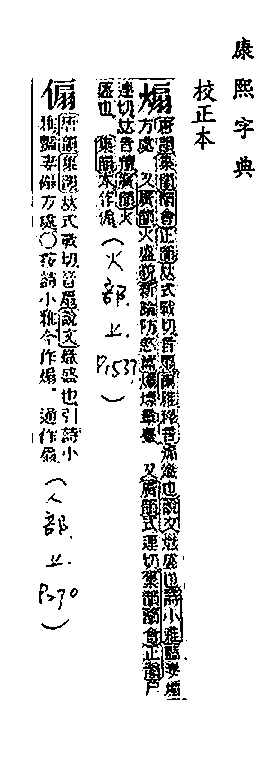 康熙字典
校正本
煽 唐韻集韻韻會正韻𠀤式戰切音扇爾雅釋言煽熾也說文熾盛也詩小雅豔妻煽
方處 又廣韻火盛貌新論防慾篇 又廣韻式連切集韻韻會正韻尸
連切𠀤音羶廣韻火
盛也 集韻本作傓
(火部.上.P.1537)
傓 唐韻集韻𠀤式戰切音扇說文熾盛也引詩小
雅豔妻傓方處○按詩小雅今作煽。通作扇
(人部.上.P.270)